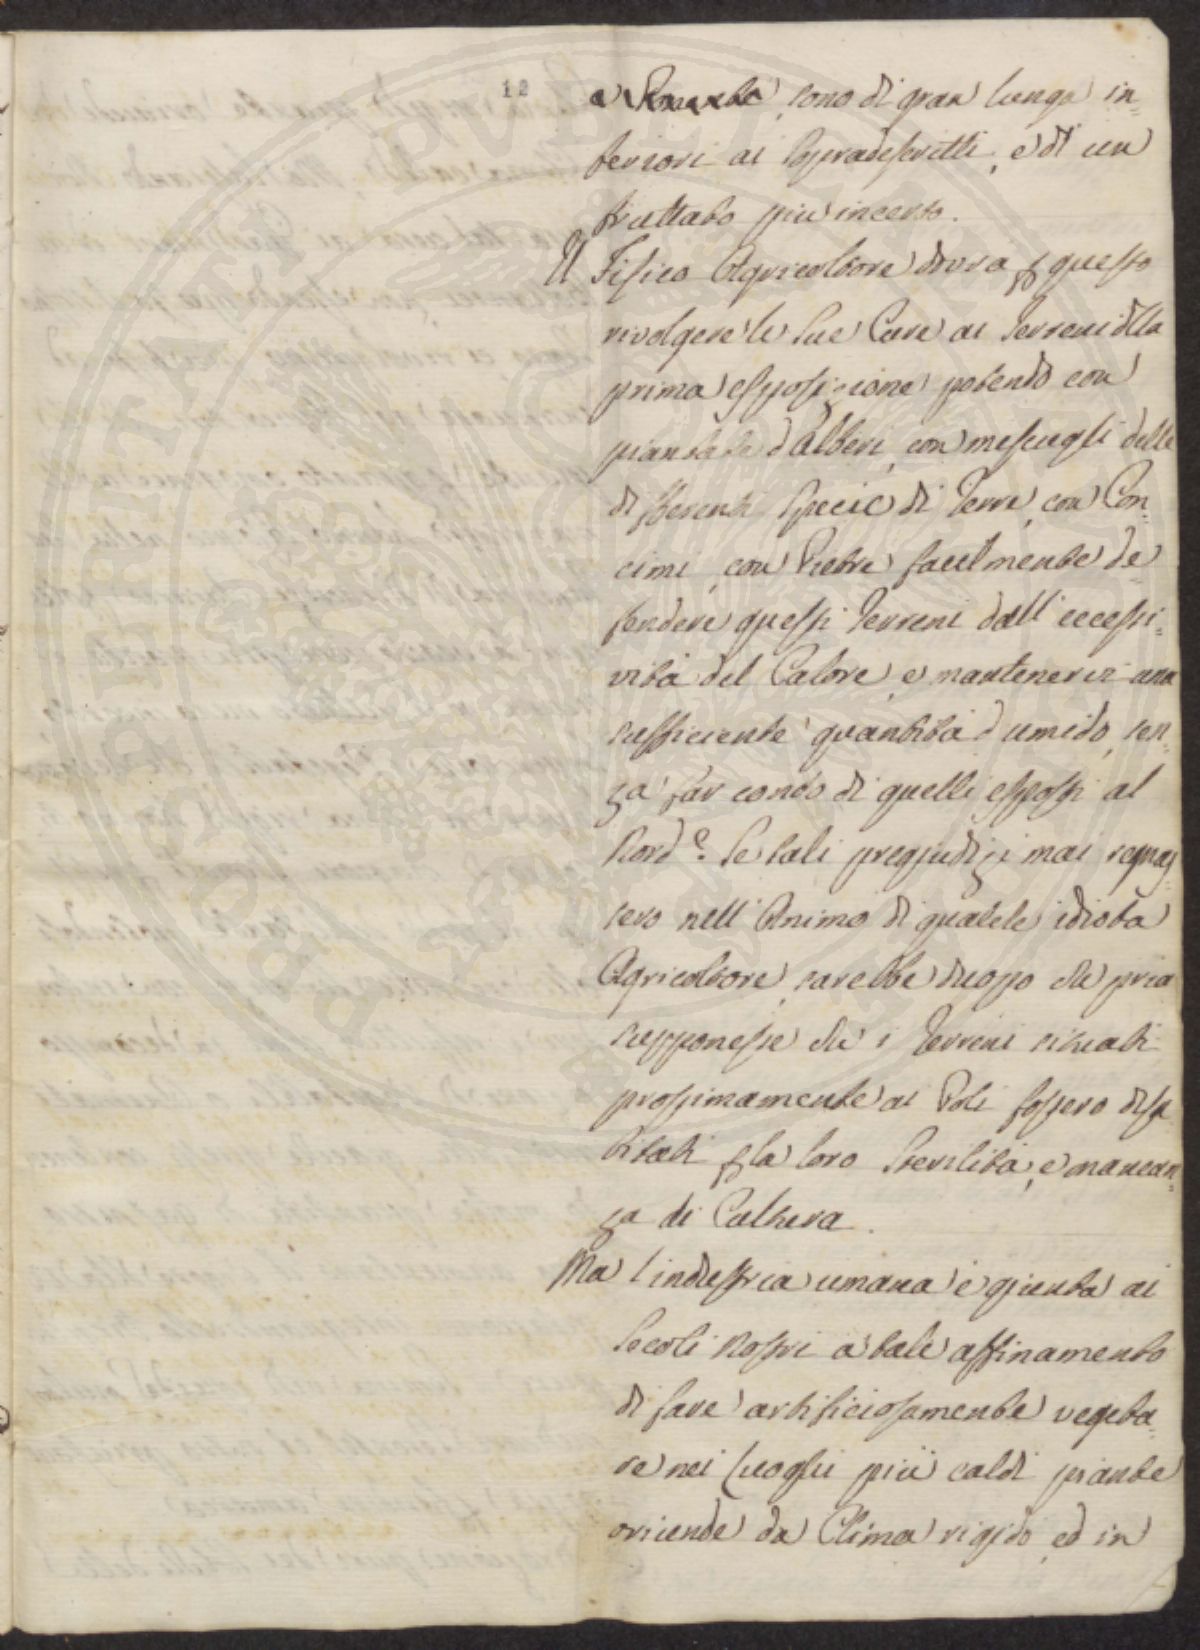 12
a Ponente, sono di gran lunga in-
feriori ai sopradescritti, e di un
fruttato più incerto.
Il Fisico Agricoltore dovrà p questo
rivolgere le sue Cure ai Terreni dlla
prima esposizione potendo con
piantate d'alberi, con mescugli delle
differenti specie di Terre, con Con-
cimi, con Pietre facilmente de
fendere questi Terreni dall'eccessi-
vità del Calore, e mantenervi una
sufficiente quantità d'umido, sen-
za far conto di quelli esposti al
Nord.e Se tali pregiudizi mai regnas-
sero nell'Animo di qualche idiota
Agricoltore, sarebbe duopo che pria
supponesse che i Terreni situati
prossimamente ai Poli fossero disa
bitati p la loro sterilità, e mancan-
za di Coltura.
Ma l'industria umana è giunta ai
Secoli Nostri a tale affinamento
di fare artificiosamente vegeta-
re nei luoghi più caldi piante
oriunde da Clima rigido, ed in